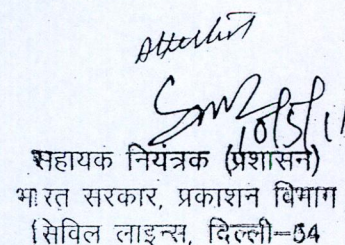 Attested
10/5/1
सहायक नियंत्रक (प्रशासन)
भारत सरकार, प्रकाशन विभाग
सिविल लाइन्स, दिल्ली–54